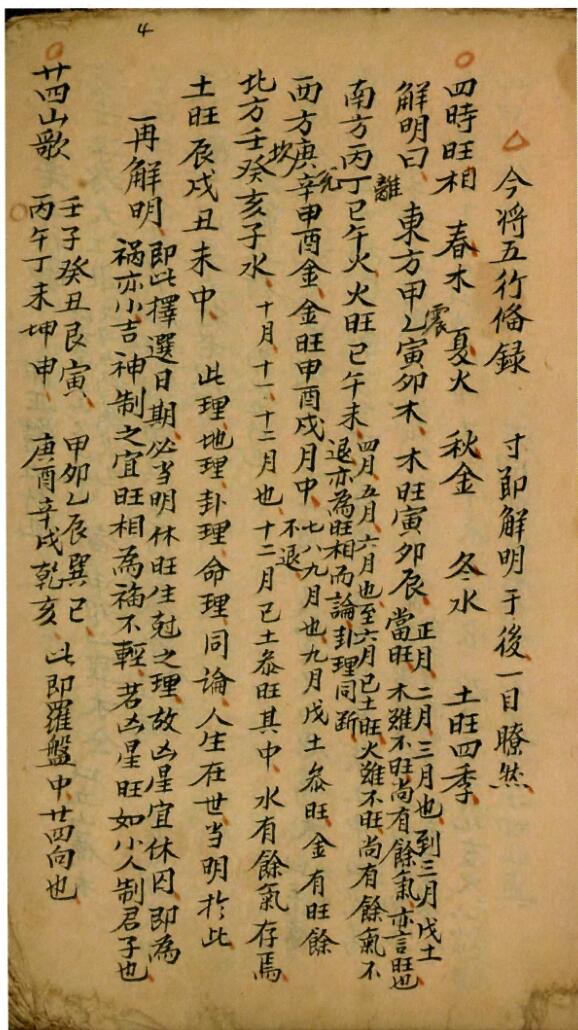 4
今将五行俻録 寸即解明于後一目瞭然
四時旺相 春木 夏火 秋金 冬水 土旺四季
解明曰 東方甲乙寅卯木 木旺寅卯辰 當旺
震
正月二月三月也到三月戊土
木雖不旺尚有餘氣亦言旺也
離
南方丙丁巳午火火旺巳午未
四月五月六月也至六月已土旺火雖不旺尚有餘氣不
退亦為旺相而論卦理同断
兌
西方庚辛申酉金金旺申酉戌月中七八九月也九月戊土叅旺金有旺餘
不退
坎
北方壬癸亥子水 十月十一十二月也十二月己土叅旺其中水有餘氣存焉
土旺辰戌丑未中 此理地理卦理命理同論人生在世當明於此
一再解明
即此擇選日期必當明休旺生尅之理故凶星宜休囚即為
禍亦小吉神制之宜旺相為福不輕若凶星旺如小人制君子也
廿四山歌
壬子癸丑艮寅 甲卯乙辰巽巳
丙午丁未坤申 庚酉辛戌乾亥
此即羅盤中廿四向也